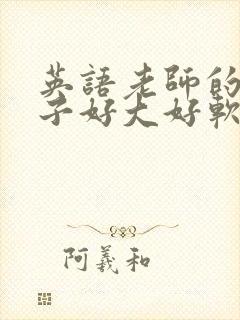 英語老師的
子好大好軟
阿羲和